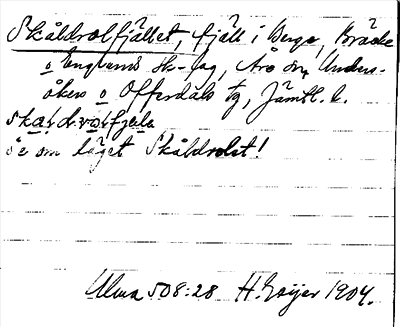 Skåldrolfjället, fjäll i Berge, Bräcke
o Englands sk-lag, Åre sn, Unders-
åkers o Offerdals tg, Jämtl. l.
se om läget Skåldrolet!
Ulma 508:28 H. Geijer 1904.